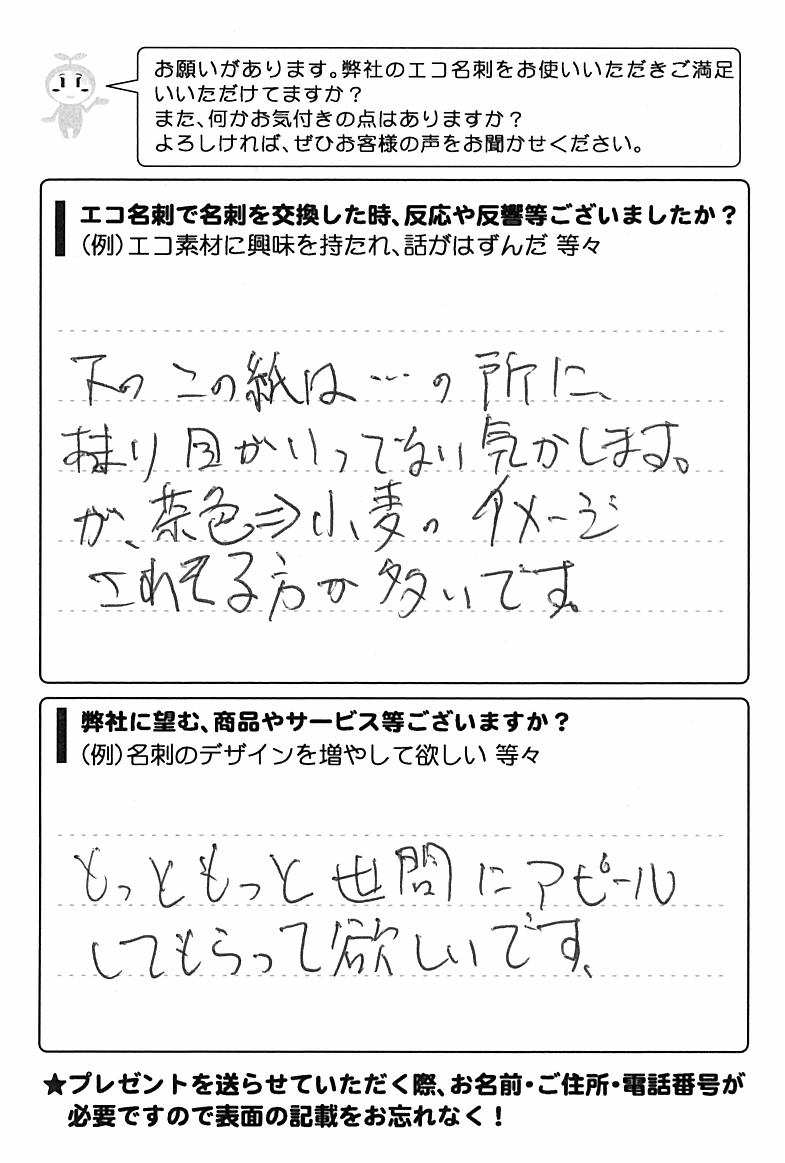 お願いがあります。弊社のエコ名刺をお使いいただきご満足
いいただけてますか？
また、何かお気付きの点はありますか？
よろしければ、ぜひお客様の声をお聞かせください。
エコ名刺で名刺を交換した時、反応や反響等ございましたか？
（例）エコ素材に興味を持たれ、話がはずんだ 等々
下の この紙は…の所に、
余り 目がいってない気がします。
が、茶色⇒小麦の イメージ
されてる方が多いです。
弊社に望む、商品やサービス等ございますか？
（例）名刺のデザインを増やして欲しい 等々
もっともっと世間にアピール
してもらって欲しいです。
★プレゼントを送らせていただく際、お名前・ご住所・電話番号が
必要ですので表面の記載をお忘れなく！